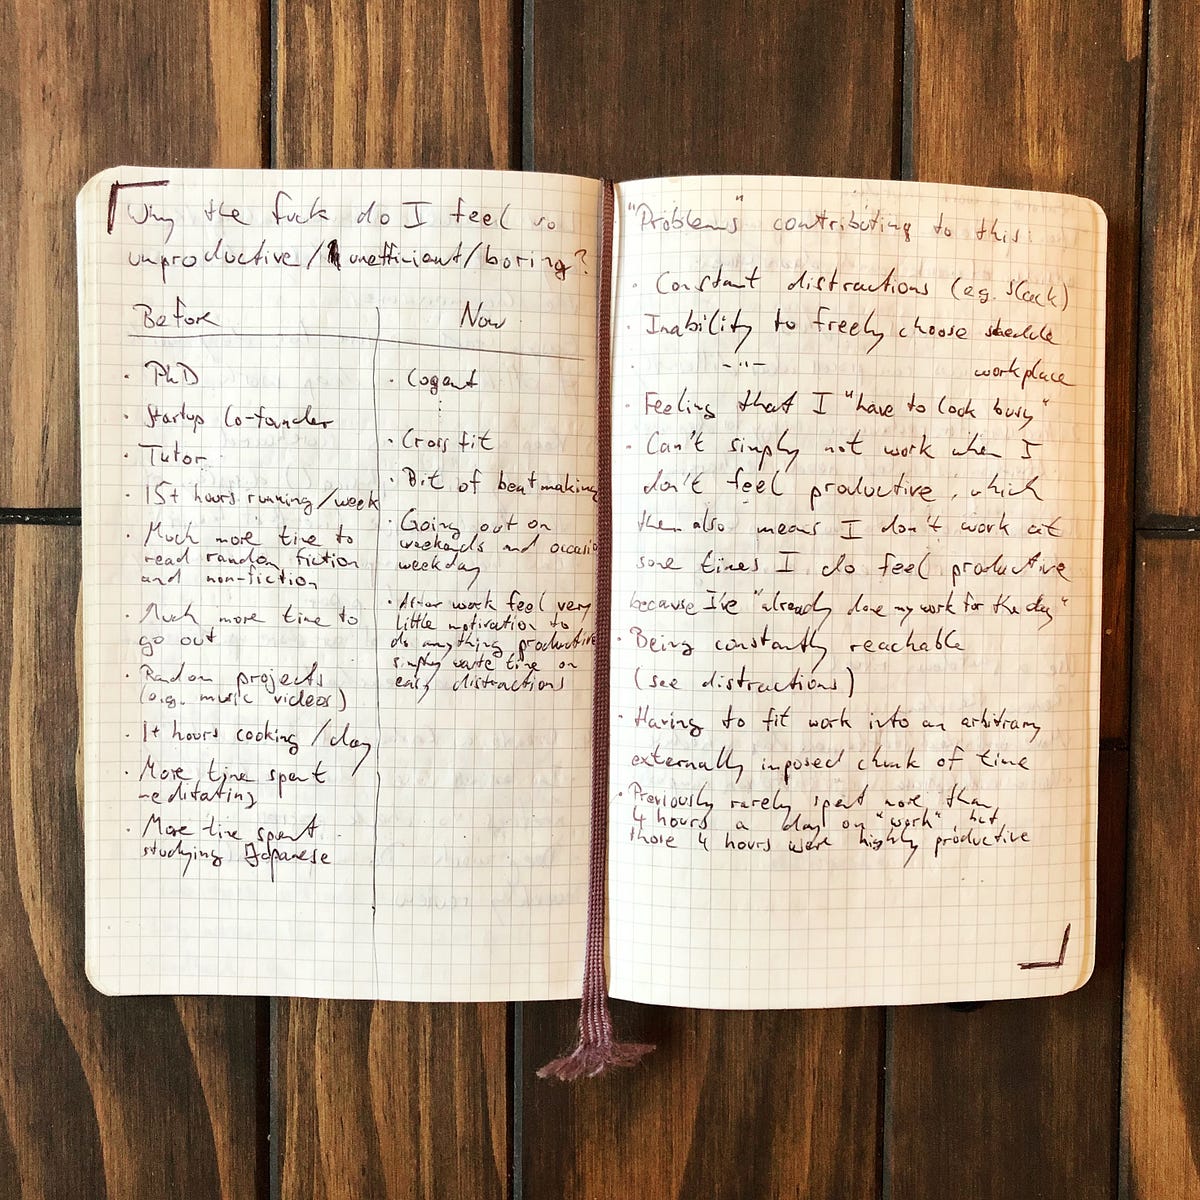 Why the fuck do I feel so
unproductive/inefficient/boring?
Before
· PhD
· Startup Co-founder
· Tutor
· 15+ hours running/week
· Much more time to
read random fiction
and non-fiction
· Much more time to
go out
· Random projects
(e.g. music videos)
· 1+ hours cooking/day
· More time spent
meditating
· More time spent
studying Japanese
Now
· Cogent
⋮
· Crossfit
· Bit of beatmaking
· Going out on
weekends and occasio
weekday
· After work feel very
little motivation to
do anything productive
simply waste time on
easy distractions
"Problems" contributing to this:
· Constant distractions (e.g. slack)
· Inability to freely choose schedule
· -"- workplace
· Feeling that I "have to look busy"
· Can't simply not work when I
don't feel productive, which
then also means I don't work at
some times I do feel productive
because I've "already done my work for the day"
· Being constantly reachable
(see distractions)
· Having to fit work into an arbitrary
externally imposed chunk of time
· Previously rarely spent more than
4 hours a day on "work", but
those 4 hours were highly productive